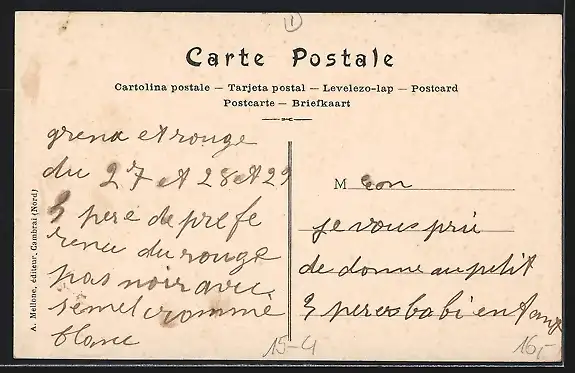 1
Carte Postale
Cartolina postale — Tarjeta postal — Levelezo-lap — Postcard
Postcarte — Briefkaart
A. Mellone, éditeur, Cambrai (Nord)
M Leon
je vous prie
de donne au petit
3 peres babi enfant
grena et rouge
du 27 et 28 et 29
3 pere de prefe
rence du rouge
pas noir avec
semel cromme
blanc
15-4
16,-